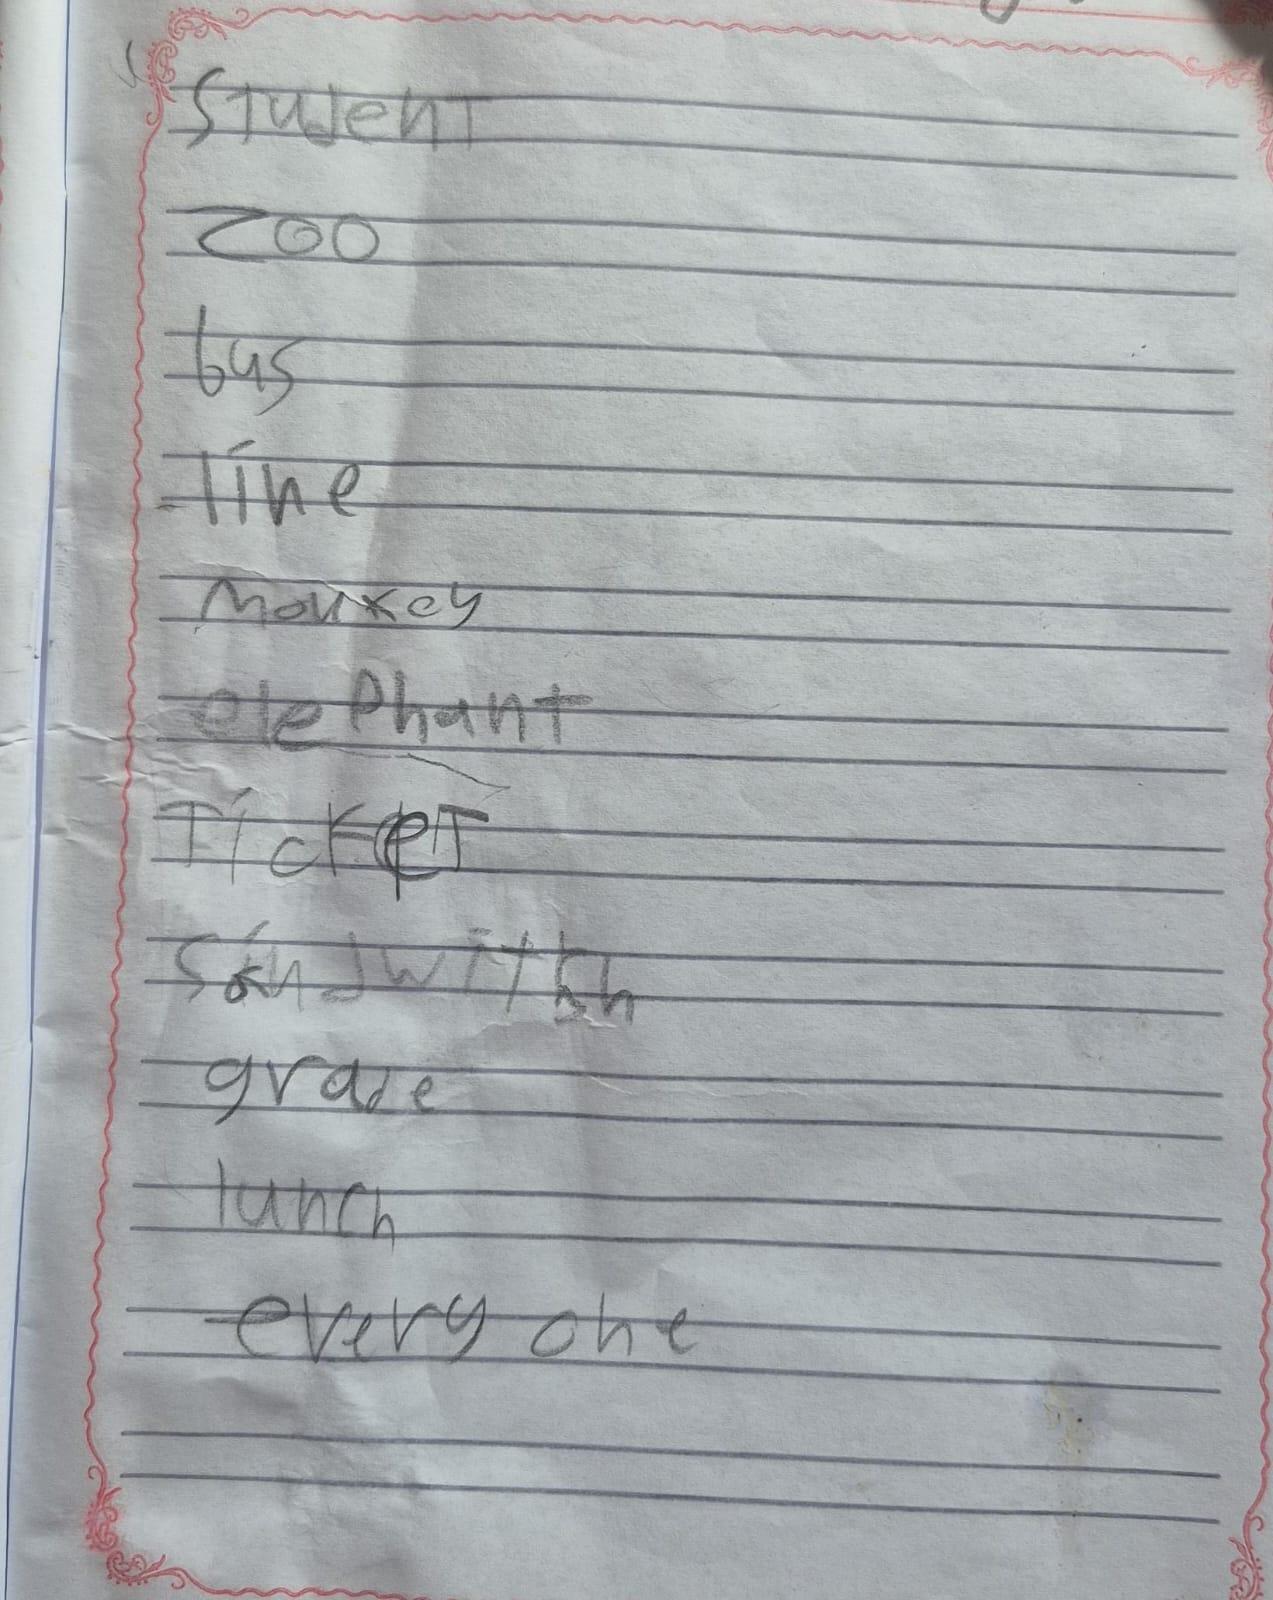 student
zoo
bus
line
monkey
elephant
Ticket
grade
lunch
every one